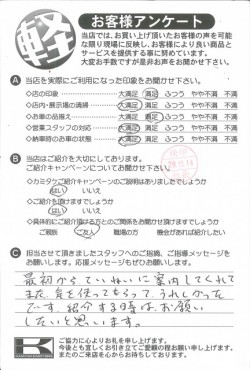 軽 お客様アンケート
当店では、お買い上げ頂いたお客様の声を可能
な限り現場に反映し、お客様により良い商品と
サービスを提供する事に努めています。
大変お手数ですが是非お声をお聞かせ下さい。
A 当店を実際にご利用になった印象をお聞かせ下さい。
◇店の印象 大満足 満足 ふつう やや不満 不満
◇店内・展示場の清掃 大満足 満足 ふつう やや不満 不満
◇お車の品揃え 大満足 満足 ふつう やや不満 不満
◇営業スタッフの対応 大満足 満足 ふつう やや不満 不満
◇納車時のお車の状態 大満足 満足 ふつう やや不満 不満
B 当店はご紹介を大切にしております。
ご紹介キャンペーンについてお聞かせ下さい。
◇カミタケご紹介キャンペーンのご説明はありましたでしょうか
はい いいえ
◇ご紹介を頂けますでしょうか
はい いいえ
◇具体的にご紹介頂ける方とのご関係をお聞かせ頂けますでしょうか
ご親族 ご友人 職場の方 機会があれば紹介したい
C 担当させて頂きましたスタッフへのご指摘、ご指導メッセージを
お願いします。応援メッセージもぜひお願いします。
最初からていねいに案内してくれて
また、気を使ってもらって、うれしかった
です。紹介する時は、お願い
したいと思います。
K
ご協力に心よりお礼を申し上げます。
今後とも宜しくお引き立てご愛顧の程お願い申し上げます。
またのご来店を心からお待ちしております。